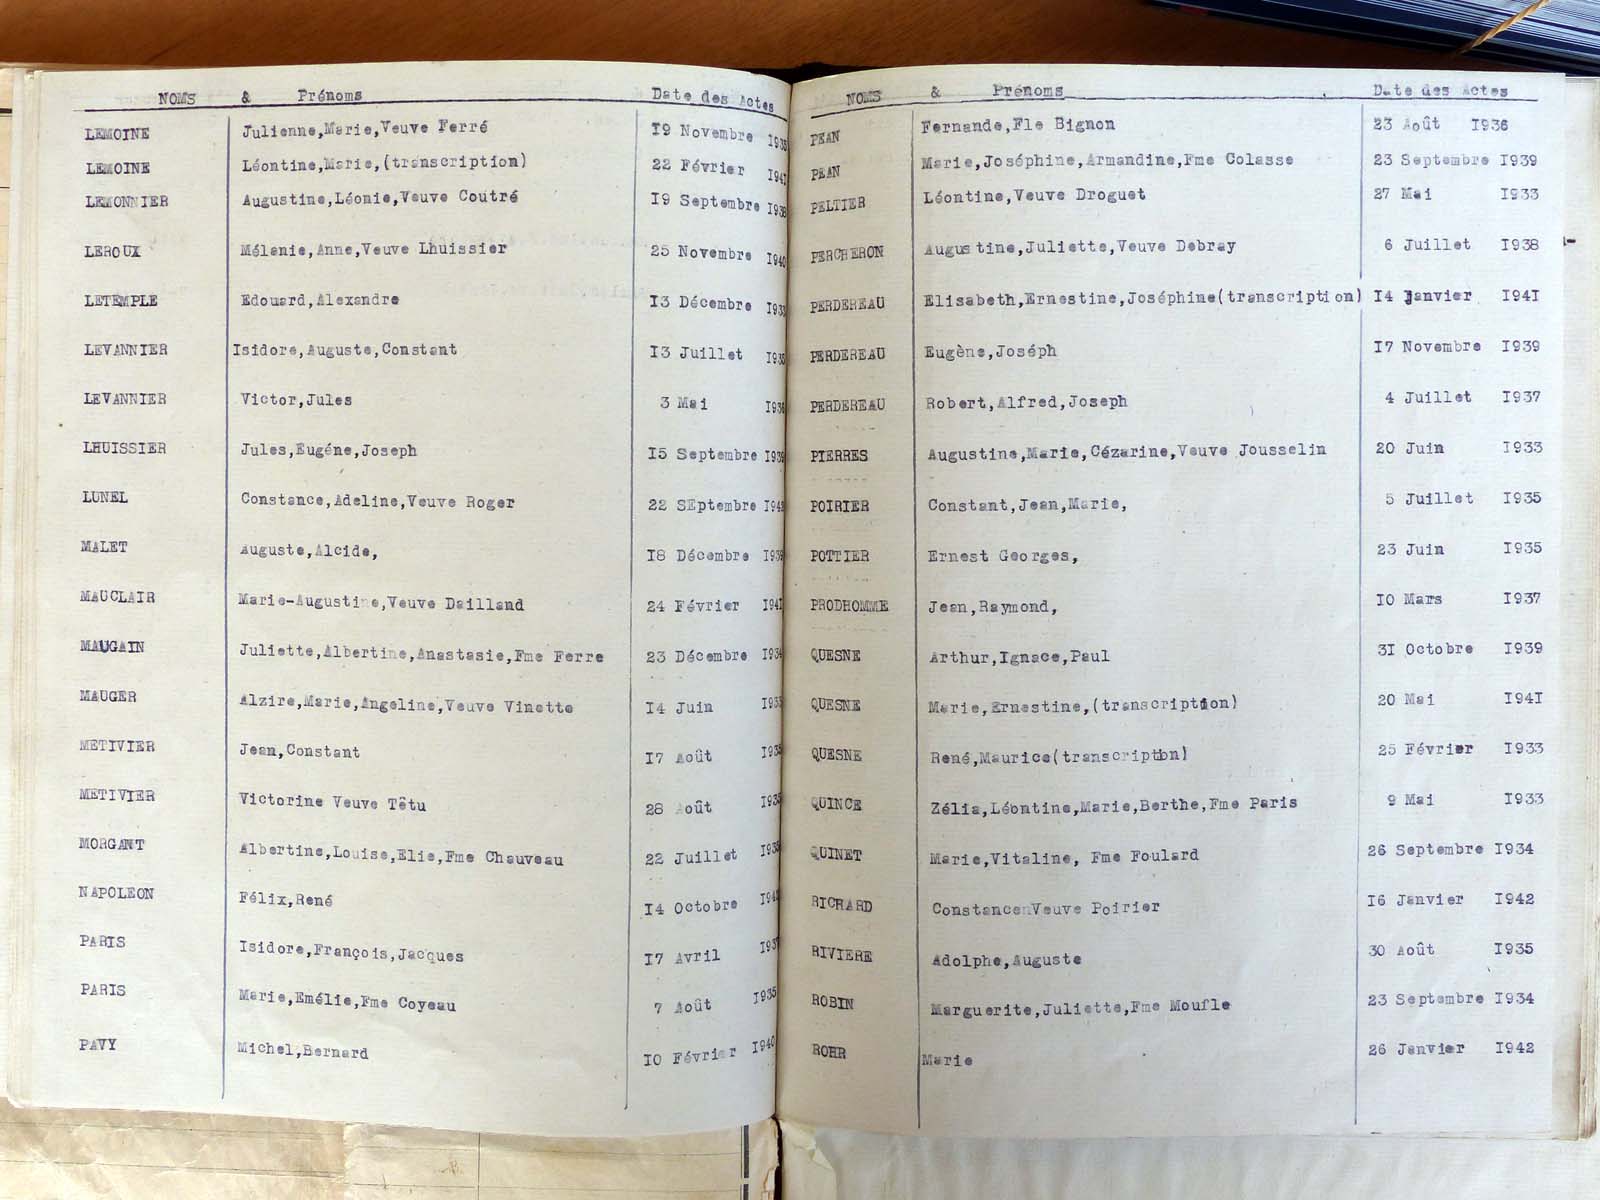 NOMS & Prénoms Date des Actes
LEMOINE Julienne,Marie,Veuve Ferré 19 Novembre 1935
LEMOINE Léontine,Marie,(transcription) 22 Février 1941
LEMONNIER Augustine,Léonie,Veuve Coutré 19 Septembre 1938
LEROUX Mélanie,Anne,Veuve Lhuissier 25 Novembre 1940
LETEMPLE Edouard,Alexandre 13 Décembre 1933
LEVANNIER Isidore,Auguste,Constant 13 Juillet 1935
LEVANNIER Victor,Jules 3 Mai
LHUISSIER Jules,Eugéne,Joseph 15 Septembre 1939
LUNEL Constance,Adeline,Veuve Roger 22 SEptembre 1942
MALET Auguste,Alcide, 18 Décembre 1939
MAUCLAIR Marie-Augustine,Veuve Dailland 24 Février 1941
MAUGAIN Juliette,Albertine,Anastasie,Fme Ferre 23 Décembre 1934
MAUGER Alzire,Marie,Angeline,Veuve Vinette 14 Juin 1933
METIVIER Jean,Constant 17 Août 1935
METIVIER Victorine Veuve Têtu 28 Août 1935
MORGANT Albertine,Louise,Elie,Fme Chauveau 22 Juillet 1935
NAPOLEON Félix,René 14 Octobre 1942
PARIS Isidore,François,Jacques 17 Avril 1937
PARIS Marie,Emélie,Fme Coyeau 7 Août 1935
PAVY Michel,Bernard 10 Février 1940
NOMS & Prénoms Date des Actes
PEAN Fernande,Fle Bignon 23 Août 1936
PEAN Marie,Joséphine,Armandine,Fme Colasse 23 Septembre 1939
PELTIER Léontine,Veuve Droguet 27 Mai 1933
PERCHERON Augustine,Juliette,Veuve Debray 6 Juillet 1938
PERDEREAU Elisabeth,Ernestine,Joséphine(transcription) 14 Janvier 1941
PERDEREAU Eugène,Joséph 17 Novembre 1939
PERDEREAU Robert,Alfred,Joseph 4 Juillet 1937
PIERRES Augustine,Marie,Cézarine,Veuve Jousselin 20 Juin 1933
POIRIER Constant,Jean,Marie, 5 Juillet 1935
POTTIER Ernest Georges, 23 Juin 1935
PRODHOMME Jean,Raymond, 10 Mars 1937
QUESNE Arthur,Ignace,Paul 31 Octobre 1939
QUESNE Marie,Ernestine,(transcription) 20 Mai 1941
QUESNE René,Maurice(transcription) 25 Février 1933
QUINCE Zélia,Léontine,Marie,Berthe,Fme Paris 9 Mai 1933
QUINET Marie,Vitaline, Fme Foulard 26 Septembre 1934
RICHARD ConstancenVeuve Poirier 16 Janvier 1942
RIVIERE Adolphe,Auguste 30 Août 1935
ROBIN Marguerite,Juliette,Fme Moufle 23 Septembre 1934
ROHR Marie 26 Janvier 1942